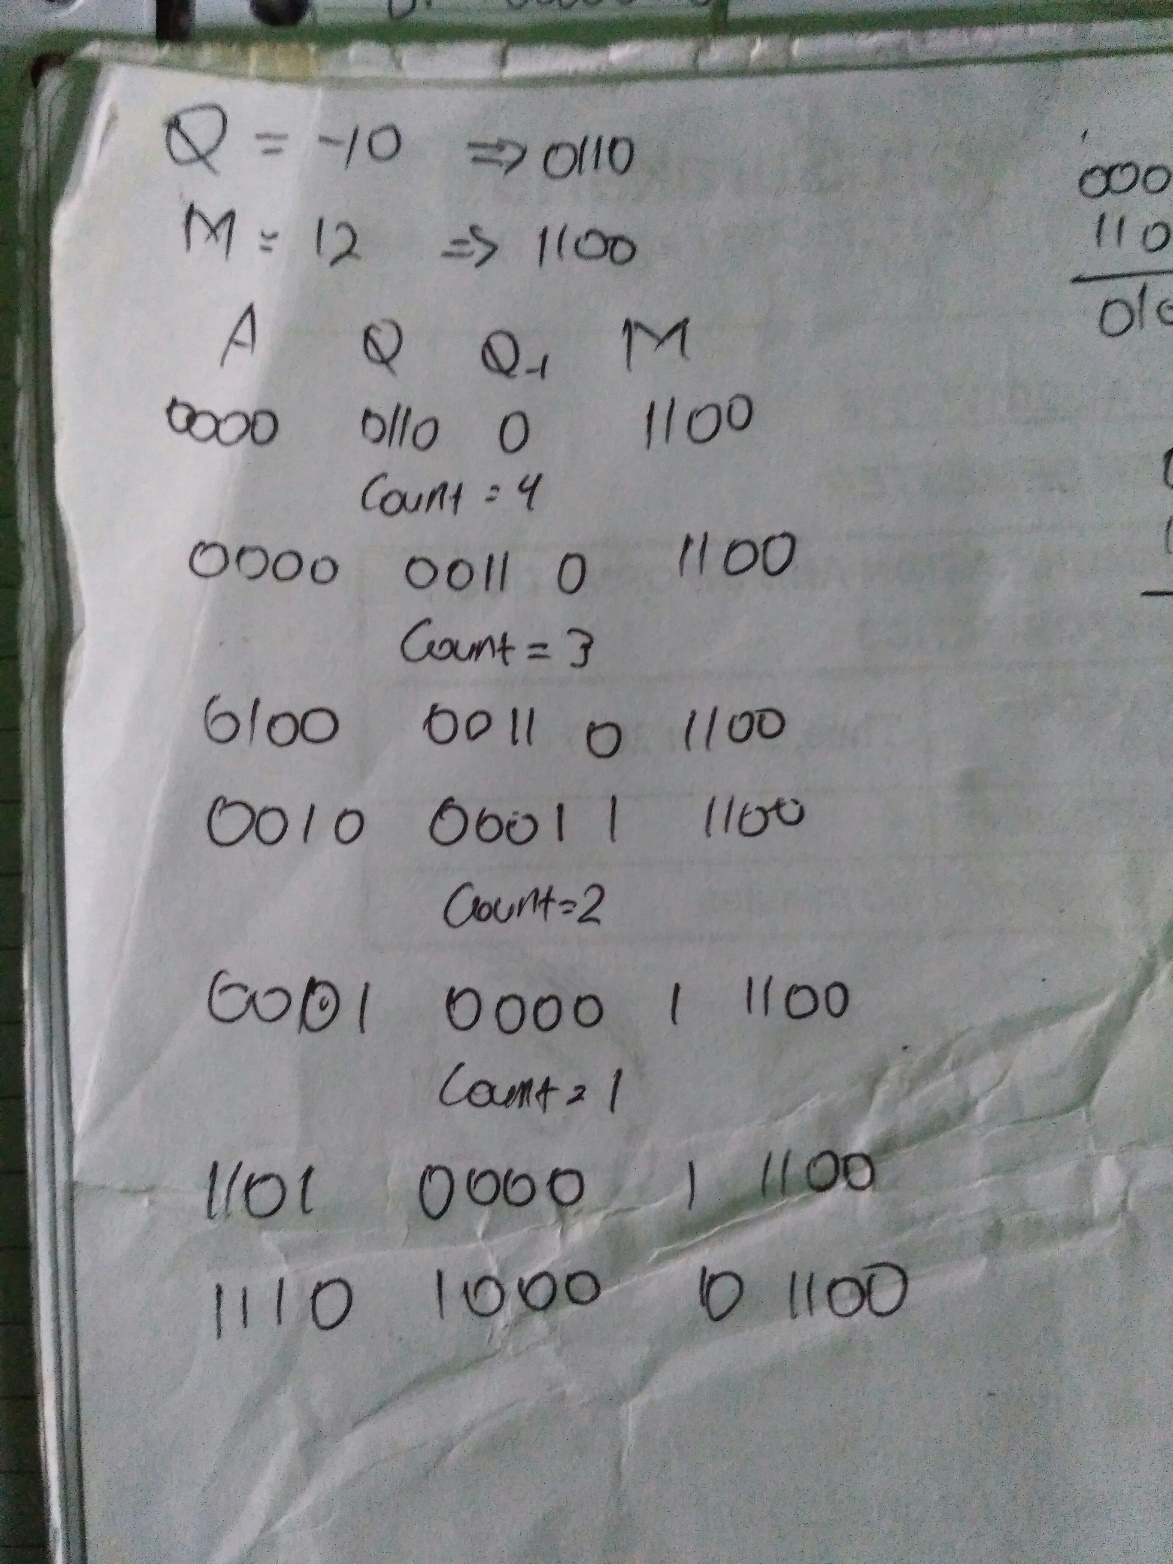 Q = -10 ⇒ 0110
M = 12 ⇒ 1100
A Q Q-1 M
0000 0110 0 1100
Count = 4
0000 0011 0 1100
Count = 3
0100 0011 0 1100
0010 0001 1 1100
Count = 2
0001 0000 1 1100
Count = 1
1101 0000 1 1100
1110 1000 0 1100
000
110
010